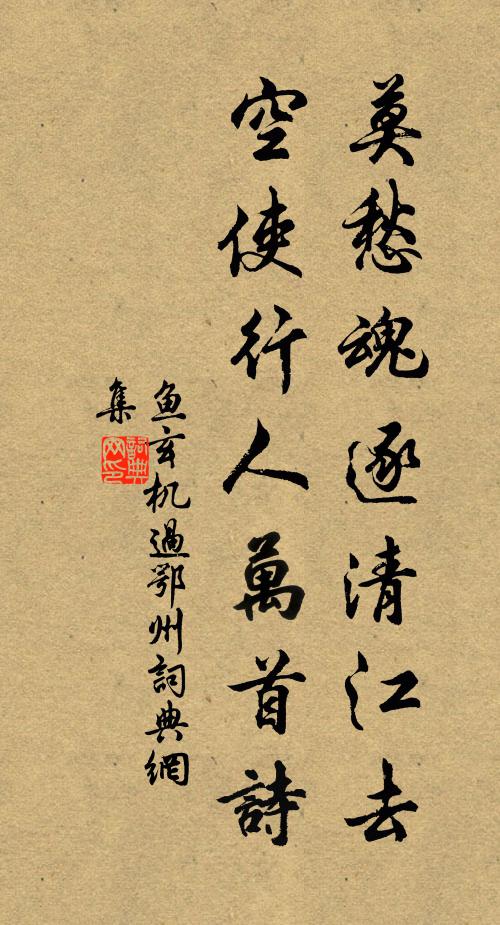 莫愁魂逐清江去
空使行人萬首詩
魚玄机過鄂州詞典網
集
詞典网印